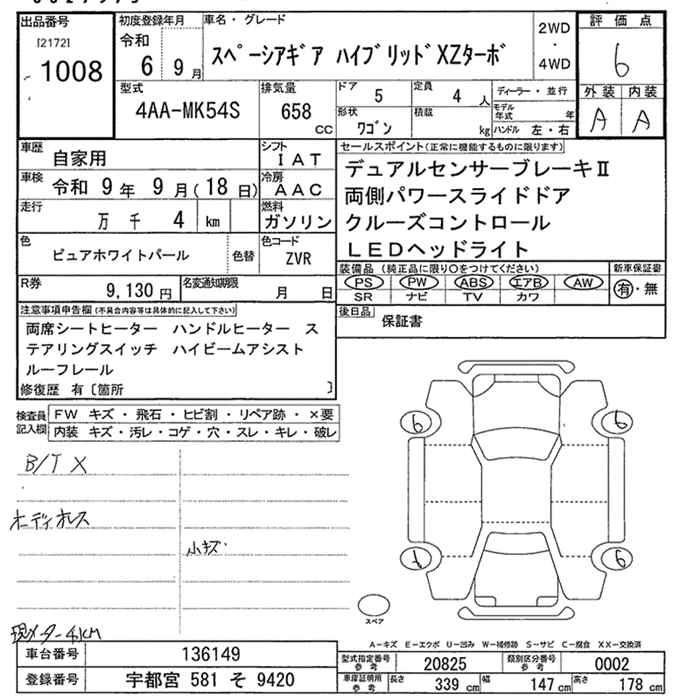 出品番号
[2172]
1008
初度登録年月
令和
6 9 月
車名・グレード
スペーシアギア ハイブリッドXZターボ
2WD
・
4WD
評価点
6
外装 内装
A A
型式
4AA-MK54S
排気量
658
CC
ドア
5
定員
4 人
形状
ワゴン
積載
kg
ディーラー・並行
モデル年式 年
ハンドル 左・右
車歴
自家用
シフト
IAT
車検
令和 9 年 9 月(18 日)
冷房
AAC
走行
万 千 4 km
燃料
ガソリン
色
ピュアホワイトパール
色替
色コード
ZVR
R券
9,130 円
名変通知期限
月 日
セールスポイント(正常に機能するものに限ります)
デュアルセンサーブレーキⅡ
両側パワースライドドア
クルーズコントロール
LEDヘッドライト
装備品(純正品に限り○をつけてください)
PS PW ABS エアB AW
SR ナビ TV カワ
新車保証書
有・無
後日品
保証書
注意事項申告欄(不具合内容等は具体的に記入して下さい)
両席シートヒーター ハンドルヒーター ス
テアリングスイッチ ハイビームアシスト
ルーフレール
修復歴 有〔箇所 〕
検査員記入欄
FW キズ・飛石・ヒビ割・リペア跡・×要
内装 キズ・汚レ・コゲ・穴・スレ・キレ・破レ
B/T X
ボディオレス
小キズ
現メーター4KM
6 6
7 6
スペア
A-キズ E-エクボ U-凹み W-補修跡 S-サビ C-腐食 XX-交換済
車台番号
136149
登録番号
宇都宮 581 そ 9420
型式指定番号参考
20825
類別区分番号参考
0002
車庫証明用参考
長さ 339 cm 幅 147 cm 高さ 178 cm